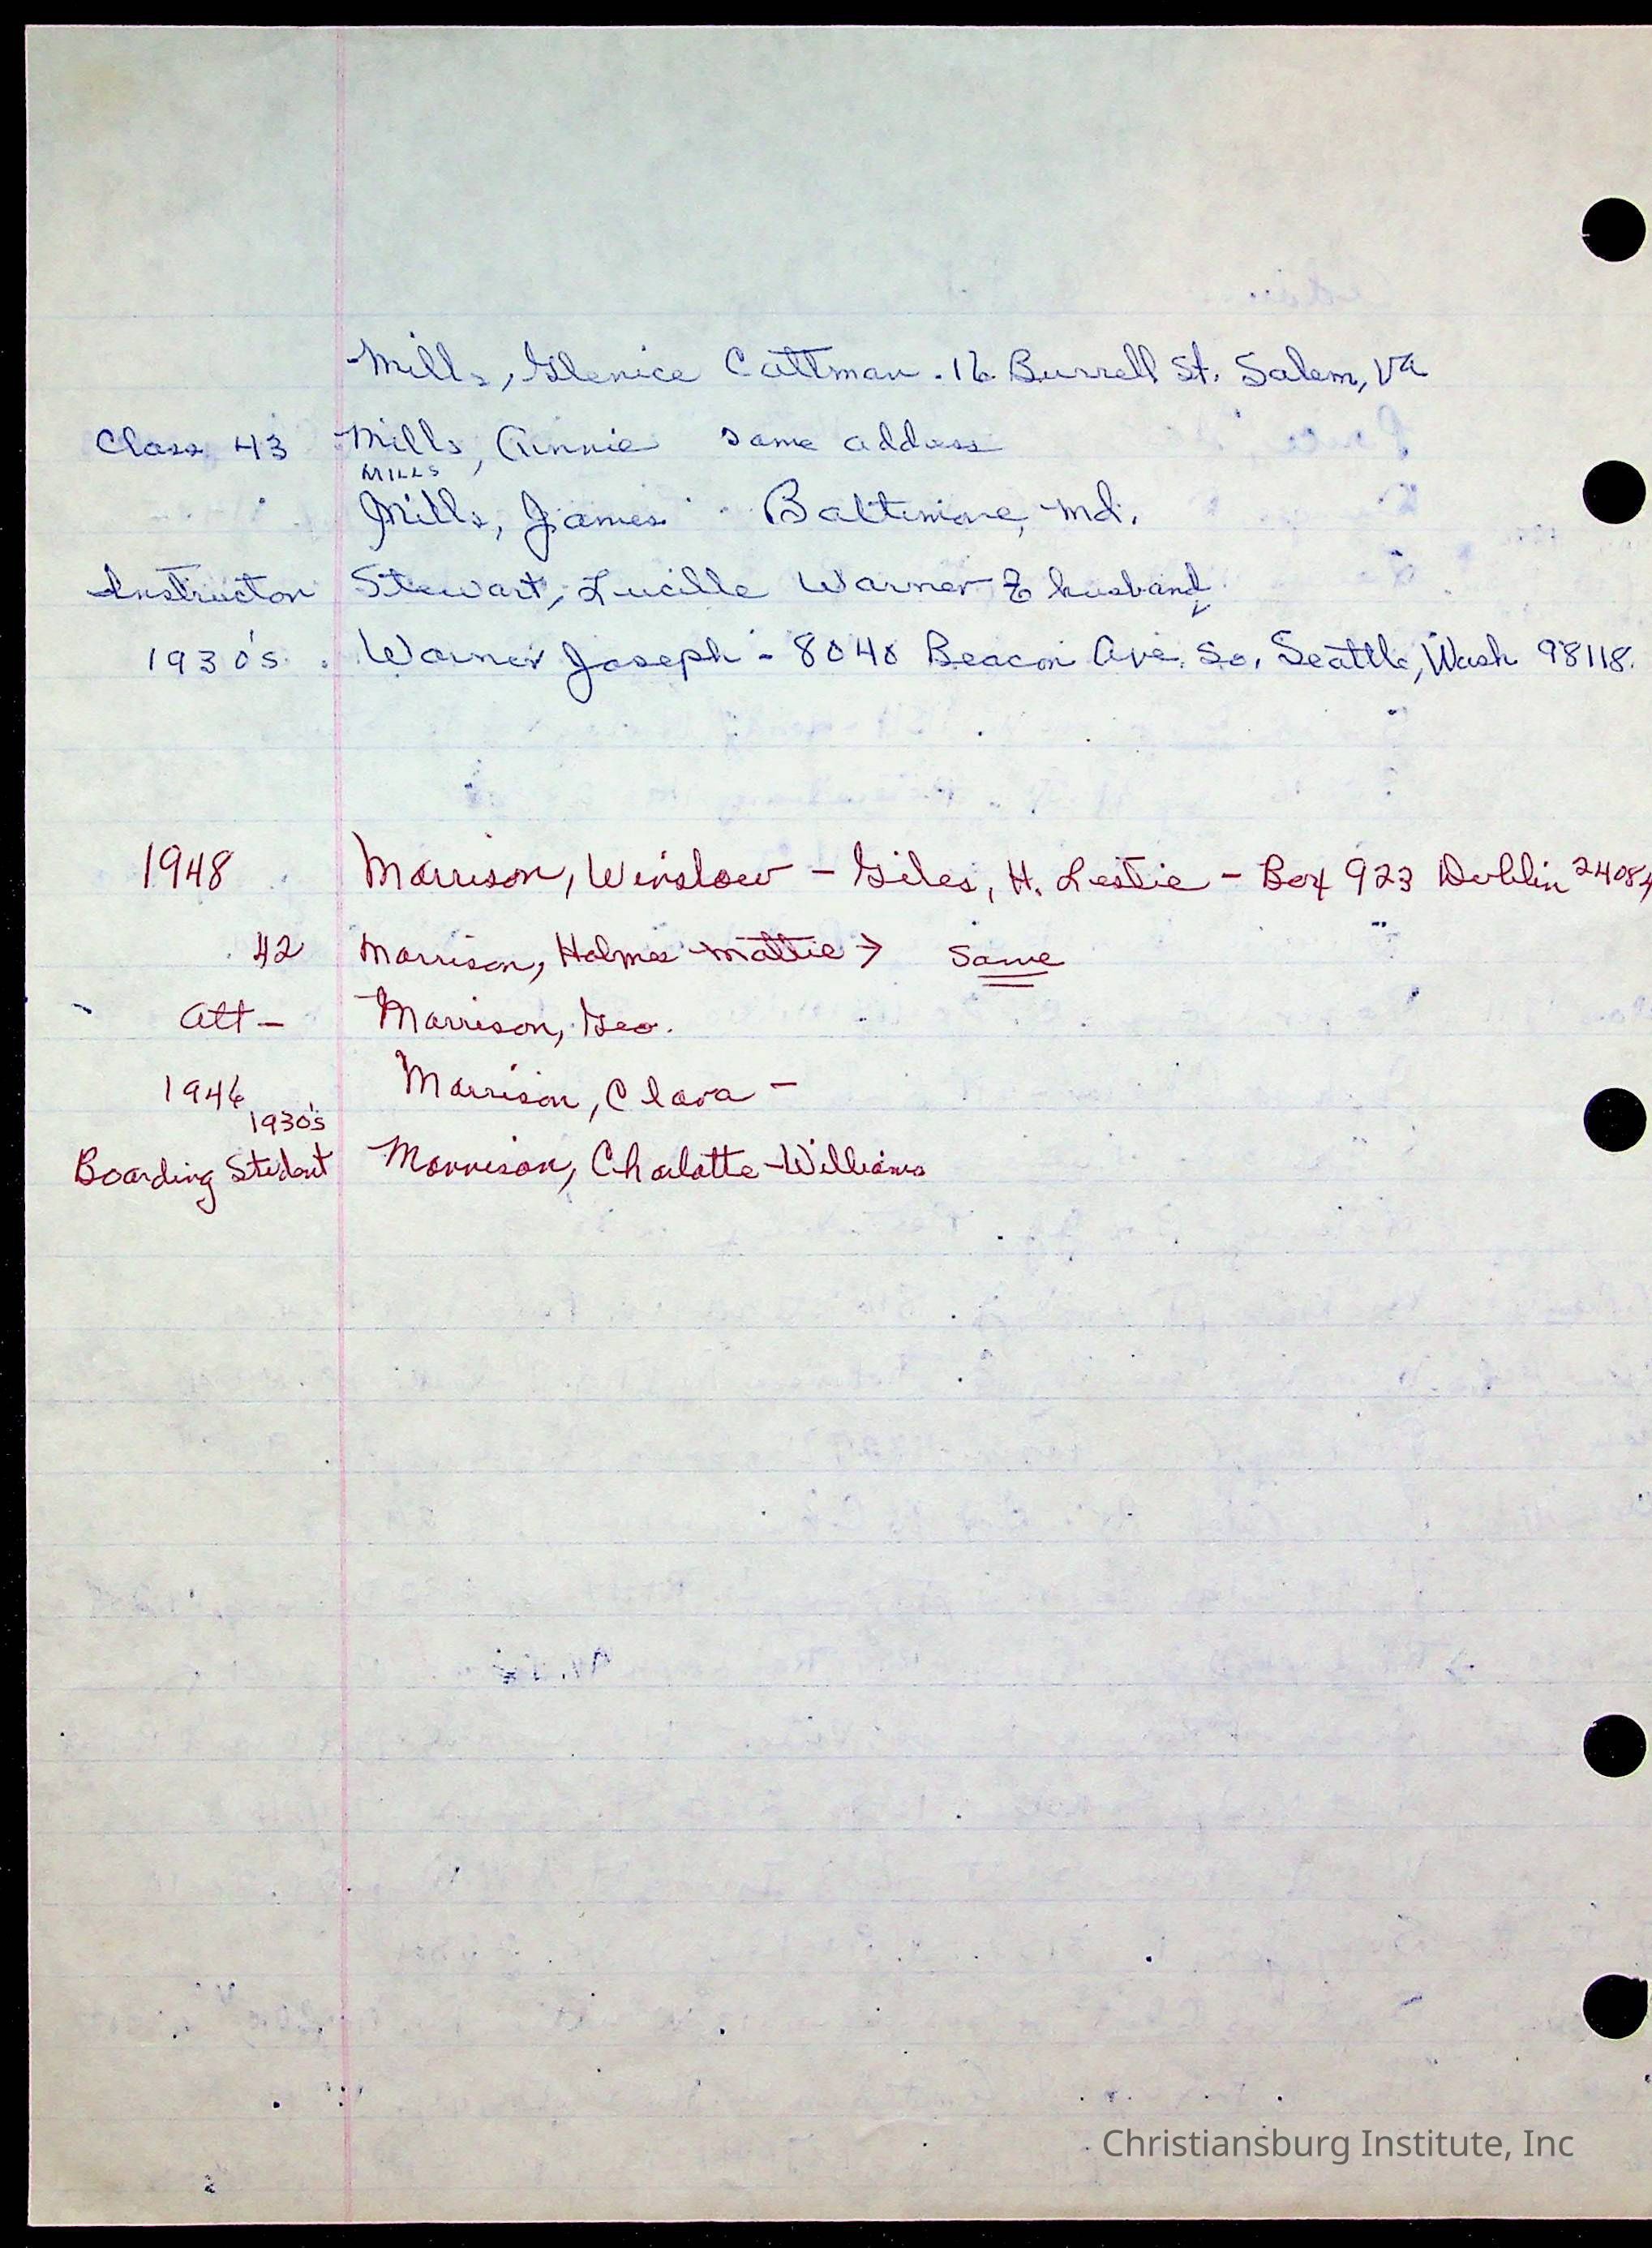 Mills, Glenice Cattman. 16 Burrell St. Salem, Va
Class 43 Mills, Annie same address
MILLS
Mills, James Baltimore, Md.
Instructor Stewart, Lucille Warner & husband,
1930's. Warner Joseph - 8040 Beacon Ave. So, Seattle, Wash 98118.
1948 Morrison, Winslow - Giles, H. Lestie - Box 923 Dublin 24084
42 Morrison, Holmes - Mattie → Same
Att - Morrison, Geo.
1946 Morrison, Clara -
1930's
Boarding Student Morrison, Charlotte - Williams
Christiansburg Institute, Inc